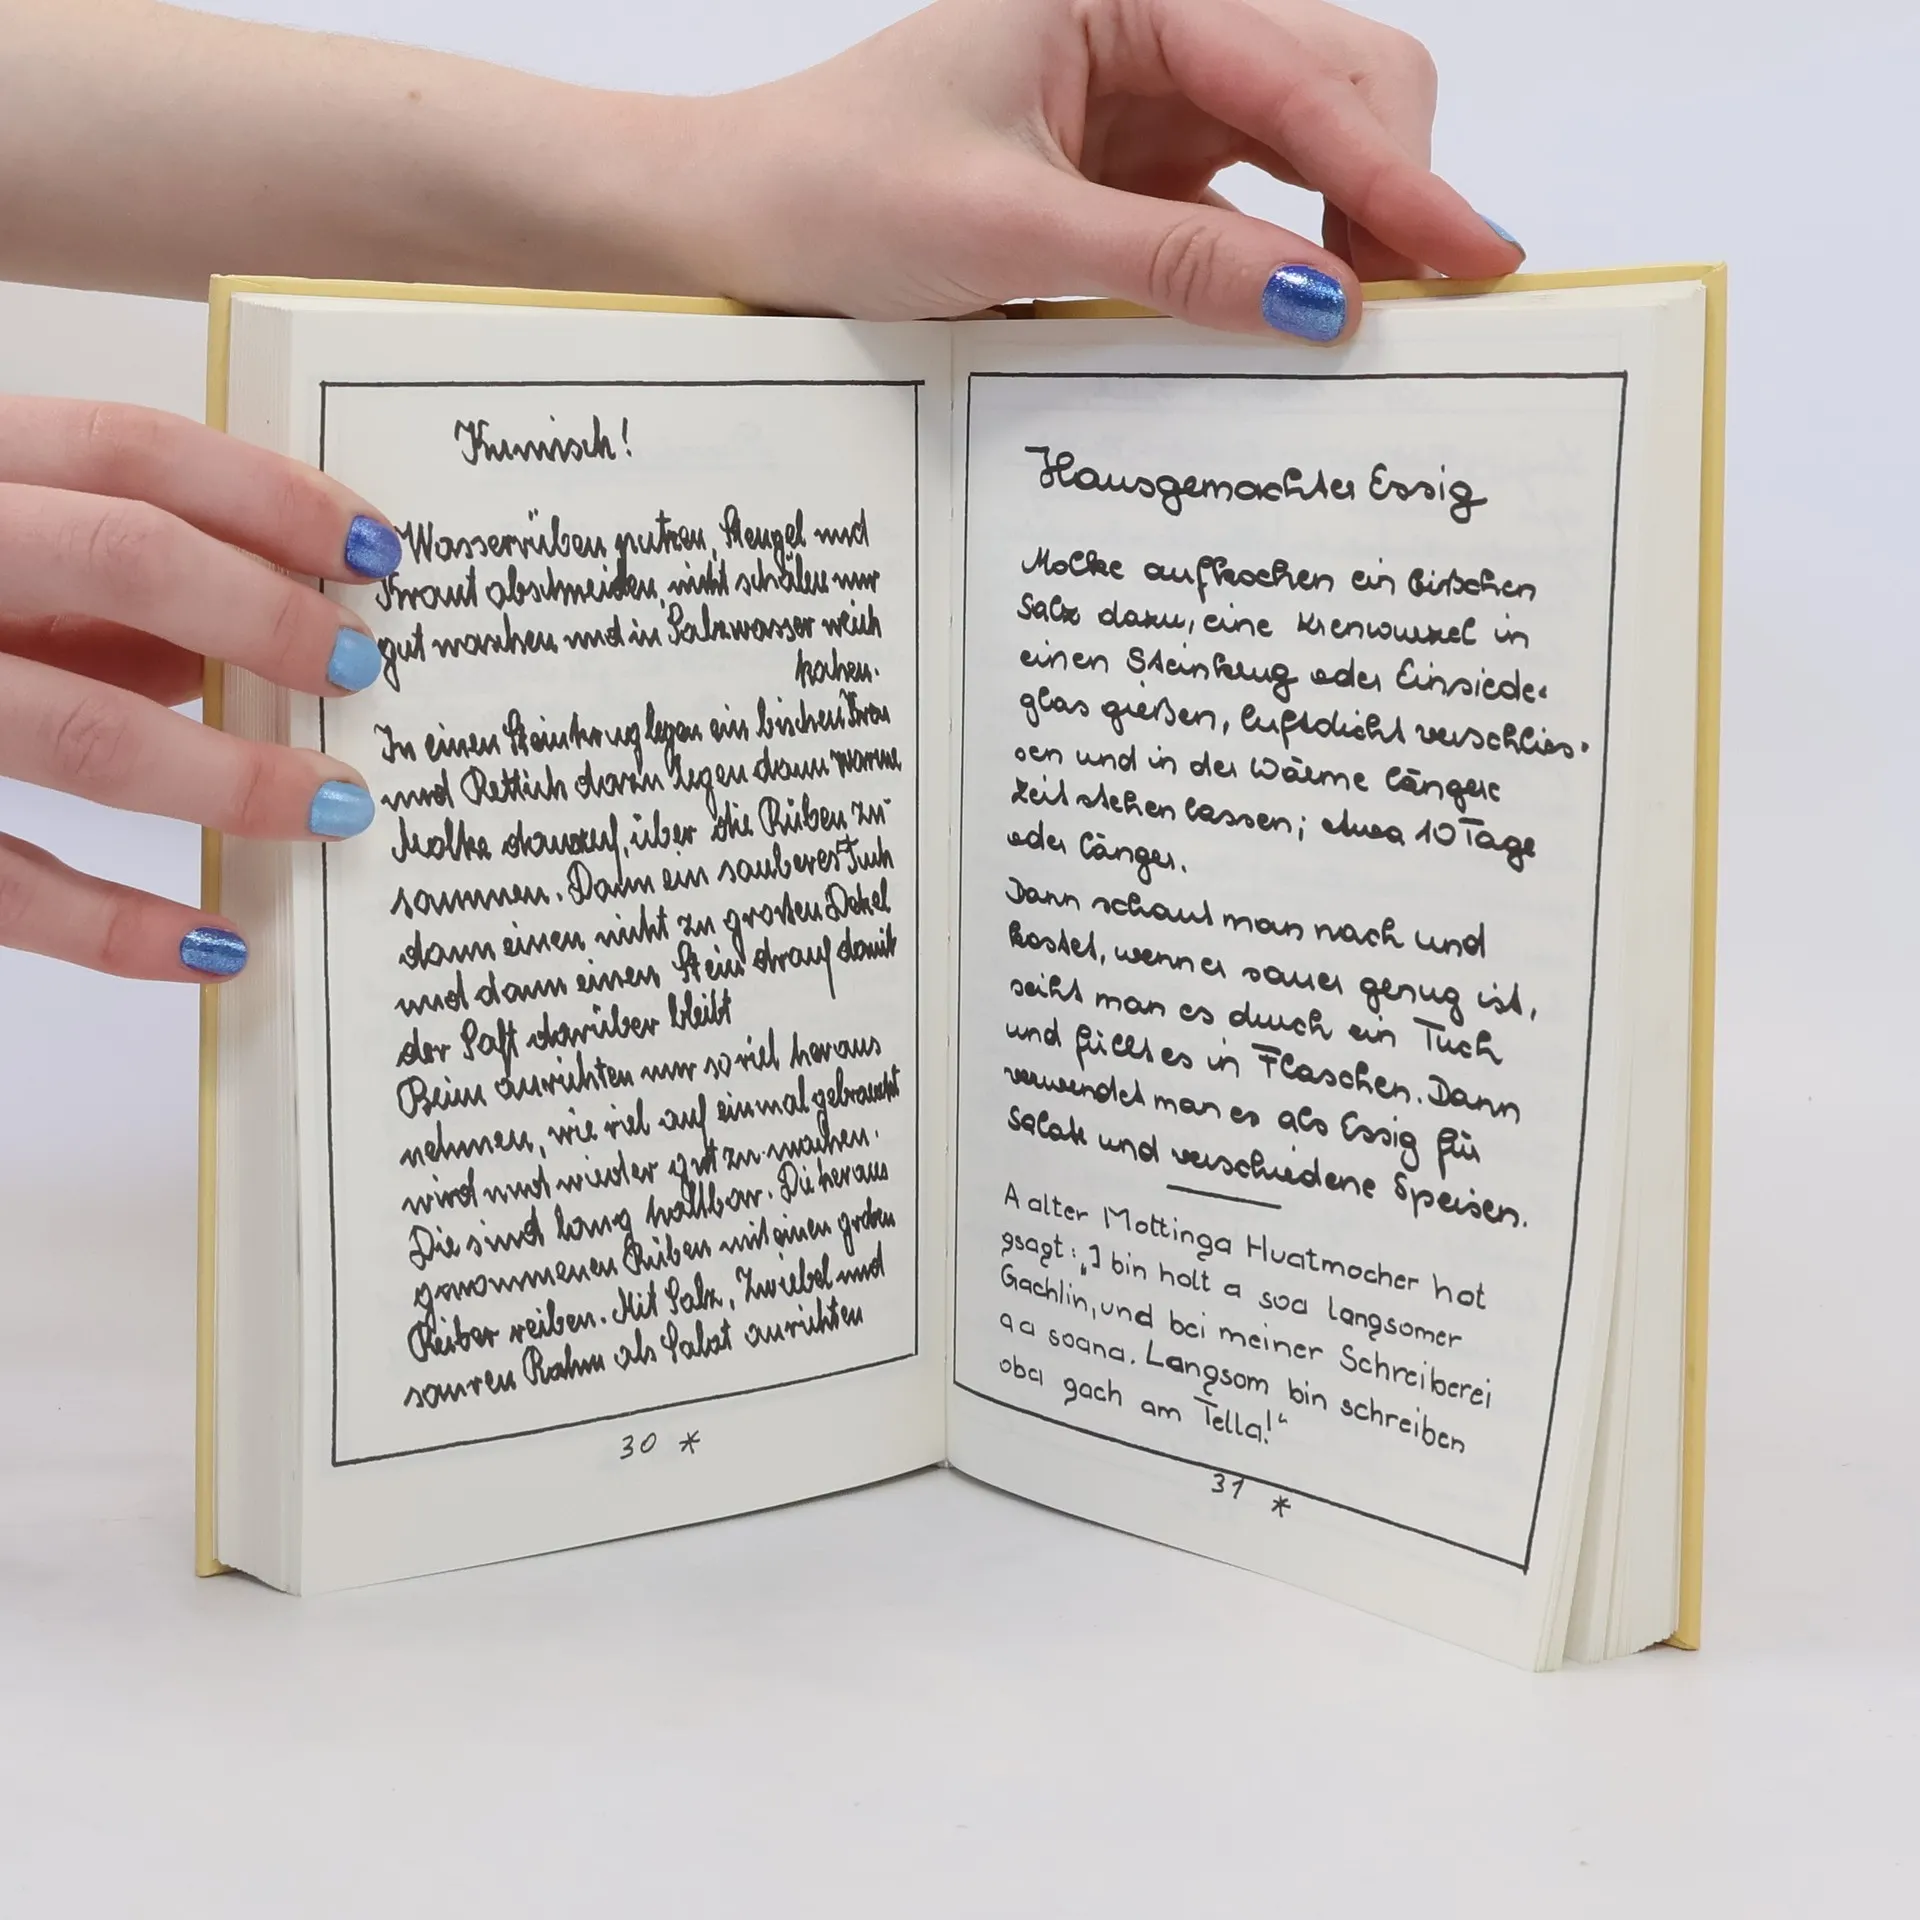 Kumisch!
Wasserrüben putzen, Stengel und
Kraut abschneiden, nicht schälen nur
gut waschen und in Salzwasser weich
kochen.
In einen Steinkrug legen ein bischen Kren
und Rettich dazu legen dann warme
Molke darauf, über die Rüben zu-
sammen. Dann ein sauberes Tuch
dann einen nicht zu großen Dekel
und dann einen Stein drauf damit
der Saft darüber bleibt
Beim anrichten nur so viel heraus
nehmen, wie viel auf einmal gebraucht
wird und wieder gut zu machen.
Die sind lang haltbar. Die heraus
genommenen Rüben mit einen groben
Reiber reiben. Mit Salz, Zwiebel und
sauren Rahm als Salat anrichten
30 *
Hausgemachter Essig
Molke aufkochen ein bißchen
Salz dazu, eine Krenwurzel in
einen Steinkrug oder Einsiede-
glas gießen, luftdicht verschlies-
sen und in der Wärme längere
Zeit stehen lassen; etwa 10 Tage
oder länger.
Dann schaut man nach und
kostet, wenn er sauer genug ist,
seiht man es durch ein Tuch
und füllt es in Flaschen. Dann
verwendet man es als Essig für
Salate und verschiedene Speisen.
A alter Mottinga Huatmocher hot
gsagt: „I bin holt a soa langsomer
Gachlin, und bei meiner Schreiberei
aa soana. Langsom bin schreiben
oba gach am Tella!"
31 *